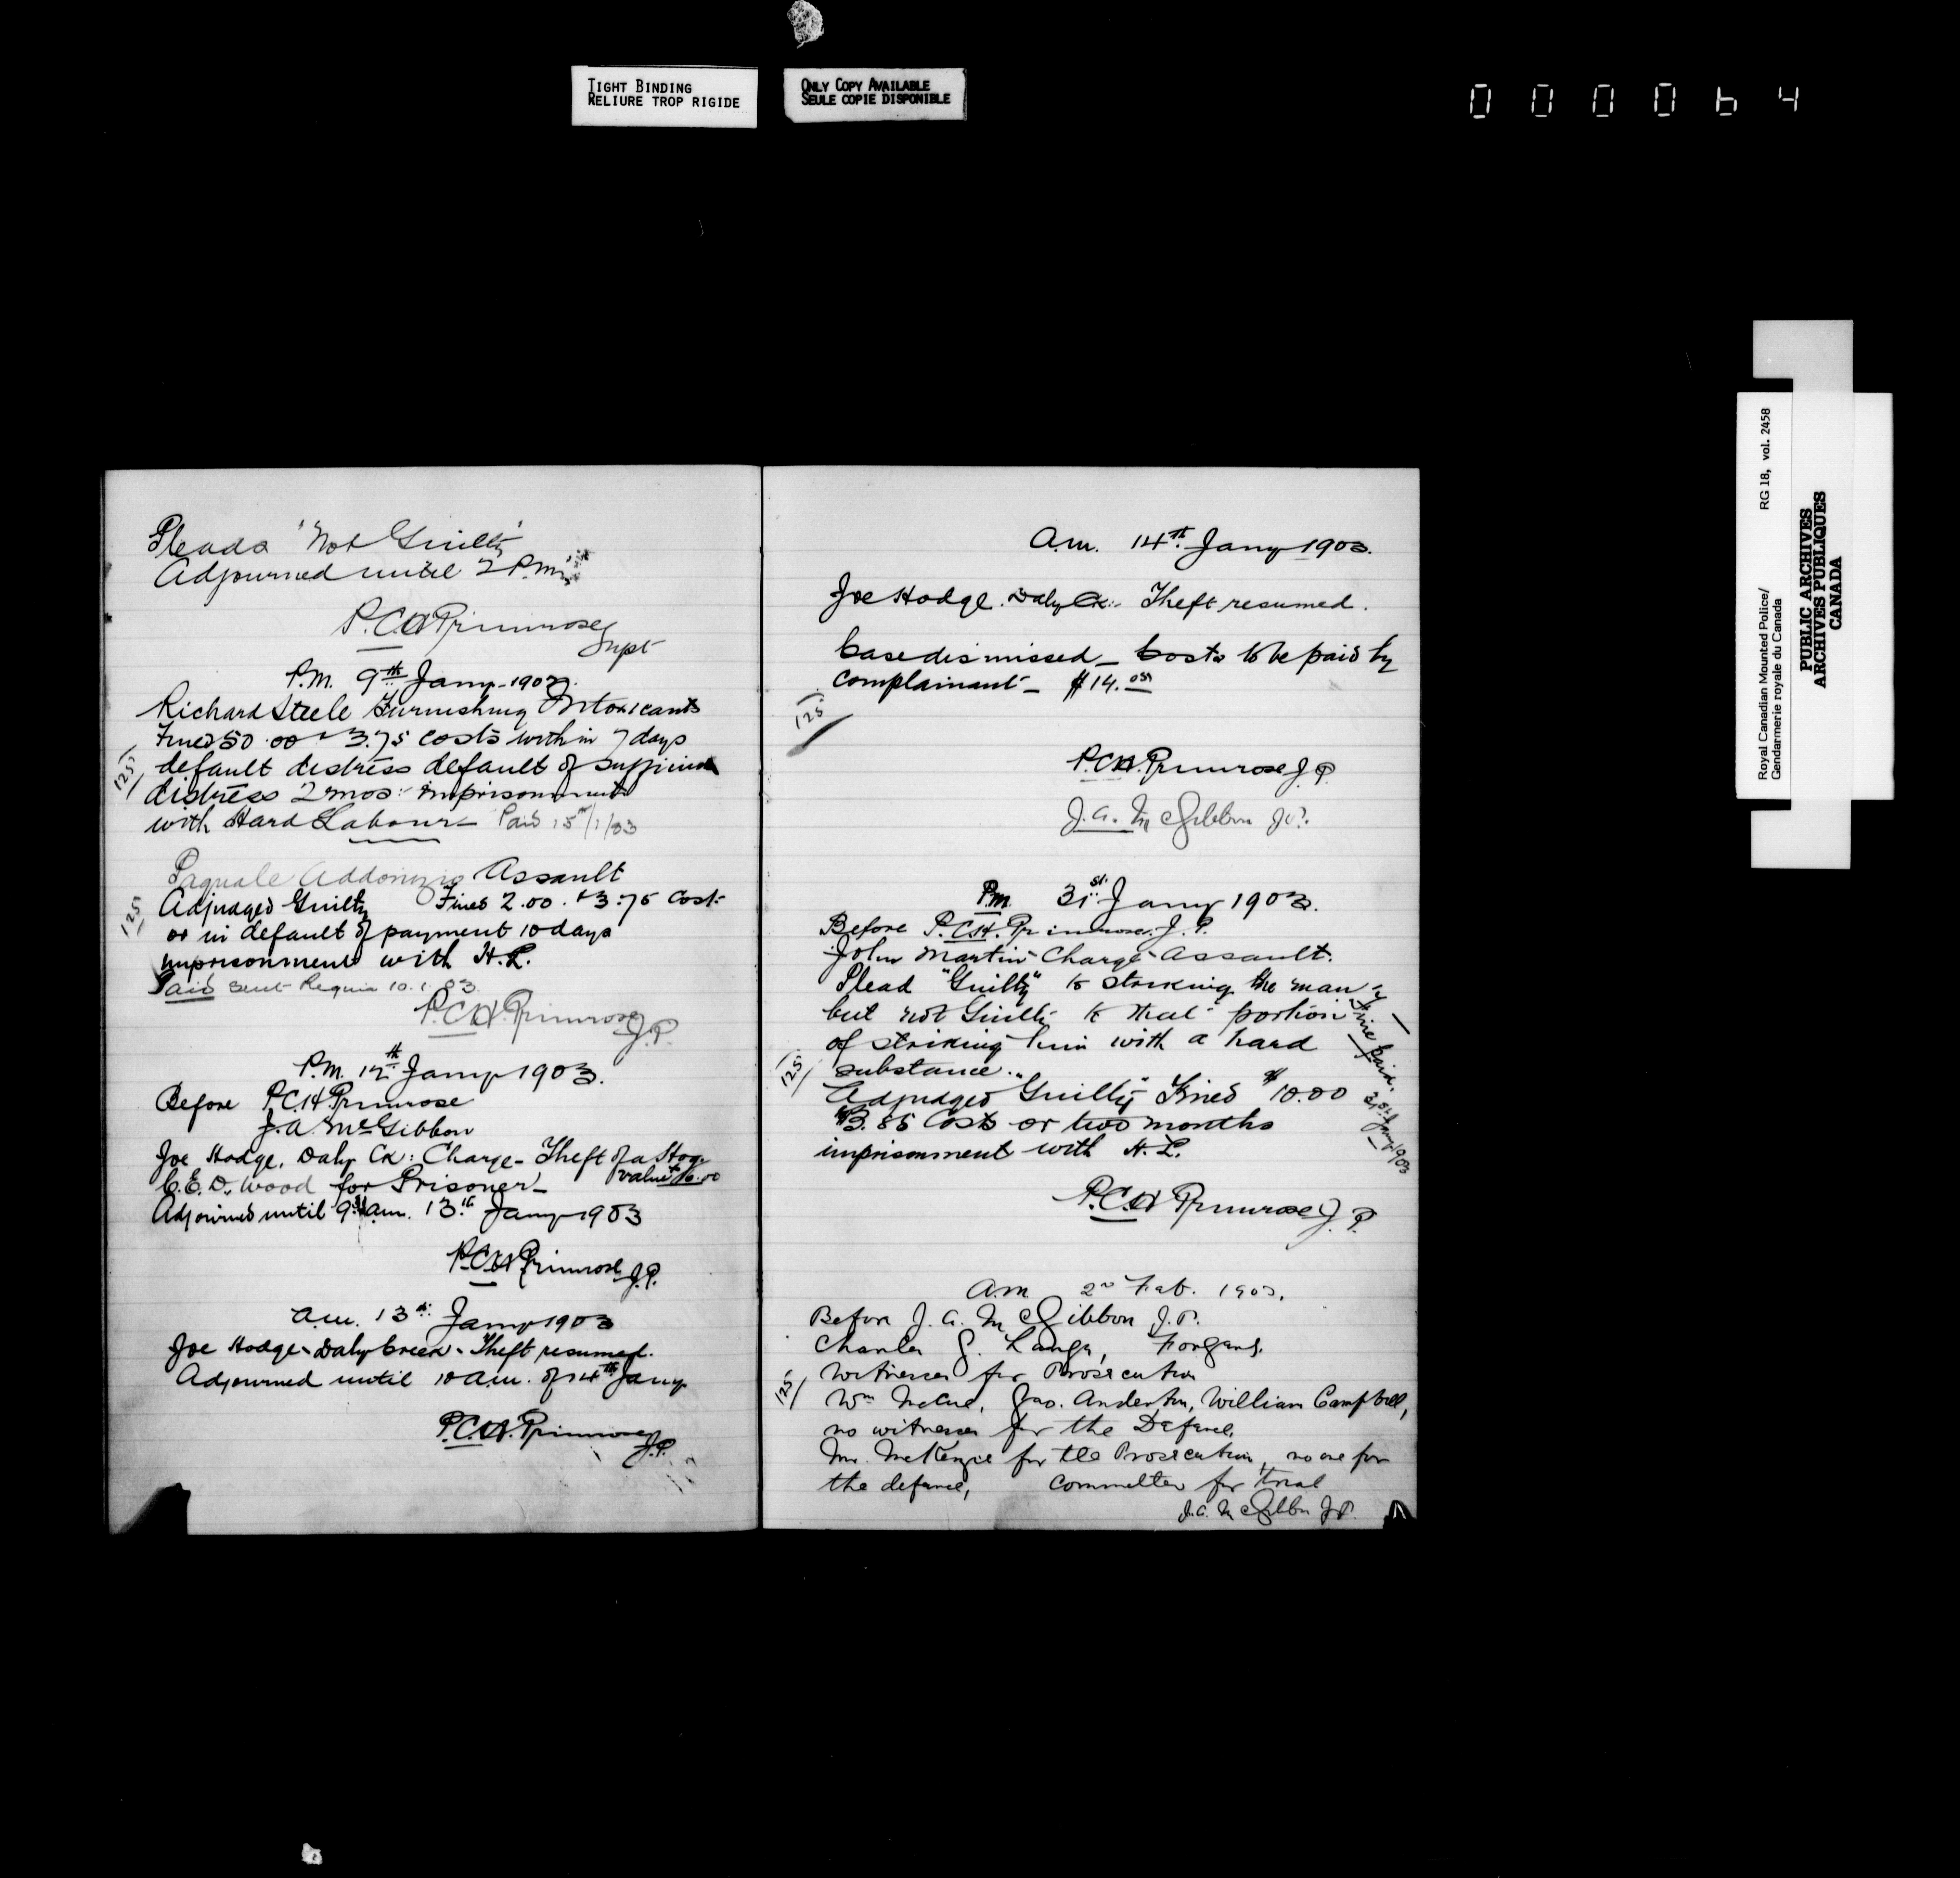 TIGHT BINDING
RELIURE TROP RIGIDE
ONLY COPY AVAILABLE
SEULE COPIE DISPONIBLE
000064
Pleads 'Not Guilty'
Adjourned until 2 P.m.
P.C.H. Primrose
Supt
P.M. 9th Jany 1903.
Richard Steele Furnishing Intoxicants
Fined 50.00 & 3.75 costs within 7 days
default distress default of sufficient
distress 2 mos: imprisonment
with Hard Labour Paid 15th/1/03
125
Paquale Addonizio Assault
Adjudged Guilty Fined 2.00. & 3.75 Cost
or in default of payment 10 days
imprisonment with H.L.
125
Paid sent Regina 10.1.03
P.C.H. Primrose
J.P.
P.M. 12th Jany 1903.
Before P.C.H Primrose
J.A. McGibbon
Joe Hodge, Daly Ck: Charge- Theft of a Hog
value
C.E.D. Wood for Prisoner-
Adjourned until 9 am. 13th Jany 1903
P.C.H Primrose J.P.
a.m. 13th Jany 1903
Joe Hodge - Daly Creek - Theft resumed.
Adjourned until 10 a.m. of 14th Jany
P.C.H. Primrose
J.P.
a.m. 14th Jany 1903.
Joe Hodge. Daly Ck:- Theft resumed.
Case dismissed - Costs to be paid by
complainant - $14.
125
P.C.H. Primrose J.P.
J.A. McGibbon J.P.
P.M. 31st Jany 1903.
Before P.C.H. Primrose. J.P.
John Martin Charge Assault.
Plead "Guilty" to striking the man
but not Guilty to that portion
of striking him with a hard
substance.
125
Adjudged "Guilty" Fined $10.00
$3.85 Costs or two months
imprisonment with H.L.
Fine paid.
31st Jany 1903
P.C.H Primrose J.P.
a.m. 2nd Feb. 1903.
Before J.A. McGibbon J.P.
Charles G. Lange, Forgery.
125
Witnesses for Prosecution
Wm McCue, Jno. Anderton, William Campbell,
no witnesses for the Defence.
Mr. McKenzie for the Prosecution, no one for
the defence, committed for trial
J.A. McGibbon J.P.
Royal Canadian Mounted Police/ RG 18, vol. 2458
Gendarmerie royale du Canada
PUBLIC ARCHIVES
ARCHIVES PUBLIQUES
CANADA